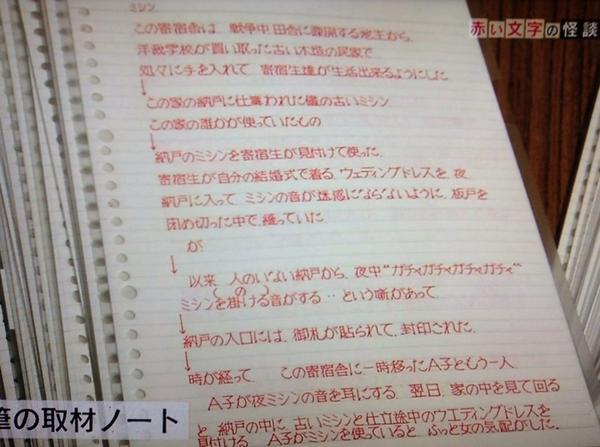 赤い文字の怪談
ミシン
この寄宿舎は、戦争中 田舎に疎開する家主から、
洋裁学校が買い取った古い木造の民家で
処々に手を入れて 寄宿生達が生活出来るようにした
↓
この家の納戸に仕舞われた儘の古いミシン
この家の誰かが使っていたもの
↓
納戸のミシンを寄宿生が見付けて使った.
寄宿生が自分の結婚式で着る ウェディングドレスを、夜
納戸に入って ミシンの音が迷惑にならないように、板戸を
閉め切った中で、縫っていた
が
↓
以来 人のいない納戸から、夜中"ガチャガチャガチャガチャ"
ミシンを掛ける音がする‥という噺があって
↓
納戸の入口には、御札が貼られて、封印された.
↓
時が経って この寄宿舎に一時移ったA子ともう一人
A子が夜ミシンの音を耳にする. 翌日、家の中を見て回る
と 納戸の中に、古いミシンと仕立途中のウエディングドレスを
見付ける A子がミシンを使っていると ふっと女の気配がした.
筆の取材ノート